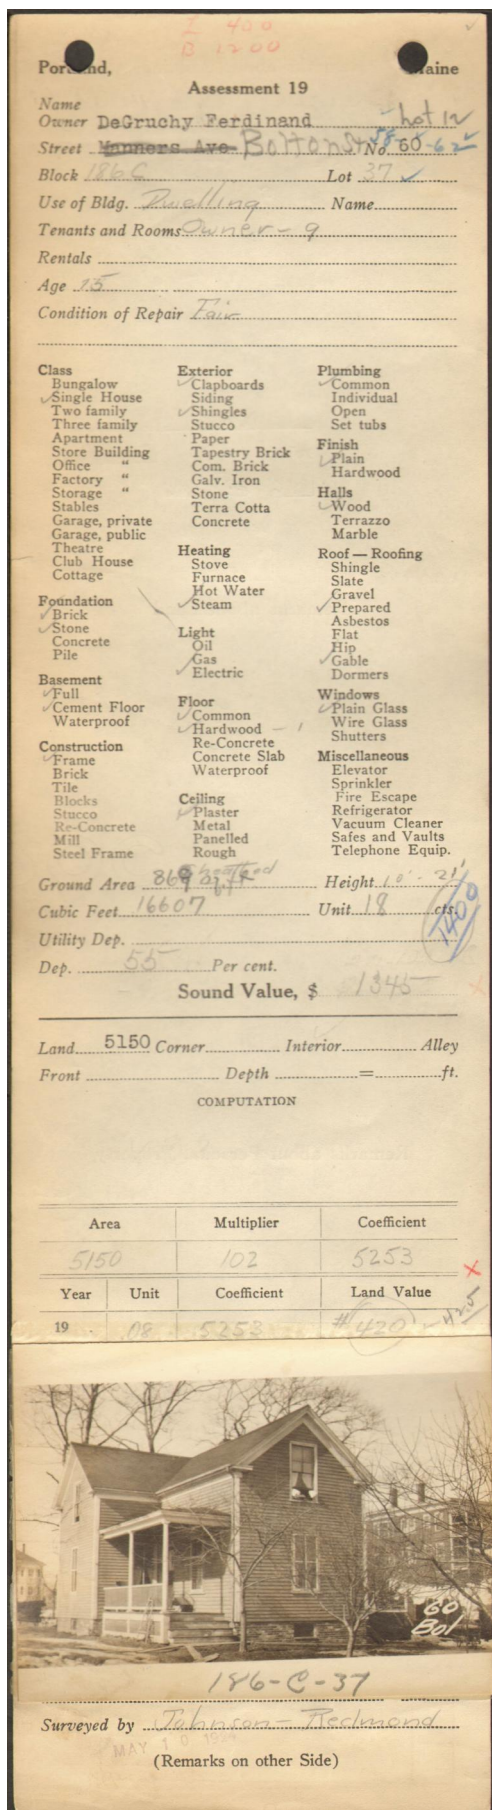 L 400
B 1200
Portland, Maine
Assessment 19
Name
Owner DeGruchy Ferdinand Lot 12
Street Manners Ave Bolton St No. 60 58-62
Block 186 C Lot 37
Use of Bldg. Dwelling Name
Tenants and Rooms Owner - 9
Rentals
Age 75
Condition of Repair Fair
Class
Bungalow
Single House
Two family
Three family
Apartment
Store Building
Office "
Factory "
Storage "
Stables
Garage, private
Garage, public
Theatre
Club House
Cottage
Foundation
Brick
Stone
Concrete
Pile
Basement
Full
Cement Floor
Waterproof
Construction
Frame
Brick
Tile
Blocks
Stucco
Re-Concrete
Mill
Steel Frame
Exterior
Clapboards
Siding
Shingles
Stucco
Paper
Tapestry Brick
Com. Brick
Galv. Iron
Stone
Terra Cotta
Concrete
Heating
Stove
Furnace
Hot Water
Steam
Light
Oil
Gas
Electric
Floor
Common
Hardwood - 1
Re-Concrete
Concrete Slab
Waterproof
Ceiling
Plaster
Metal
Panelled
Rough
Plumbing
Common
Individual
Open
Set tubs
Finish
Plain
Hardwood
Halls
Wood
Terrazzo
Marble
Roof — Roofing
Shingle
Slate
Gravel
Prepared
Asbestos
Flat
Hip
Gable
Dormers
Windows
Plain Glass
Wire Glass
Shutters
Miscellaneous
Elevator
Sprinkler
Fire Escape
Refrigerator
Vacuum Cleaner
Safes and Vaults
Telephone Equip.
Ground Area 869 sq ft Height 10' - 21'
Cubic Feet 16607 Unit 18 cts.
1400
Utility Dep.
Dep. 55 Per cent.
Sound Value, $ 1345
Land 5150 Corner Interior Alley
Front Depth = ft.
COMPUTATION
Area Multiplier Coefficient
5150 102 5253
Year Unit Coefficient Land Value
19 08 5253 # 420 425
60
Bol
186-C-37
Surveyed by Johnson - Redmond
MAY 10
(Remarks on other Side)